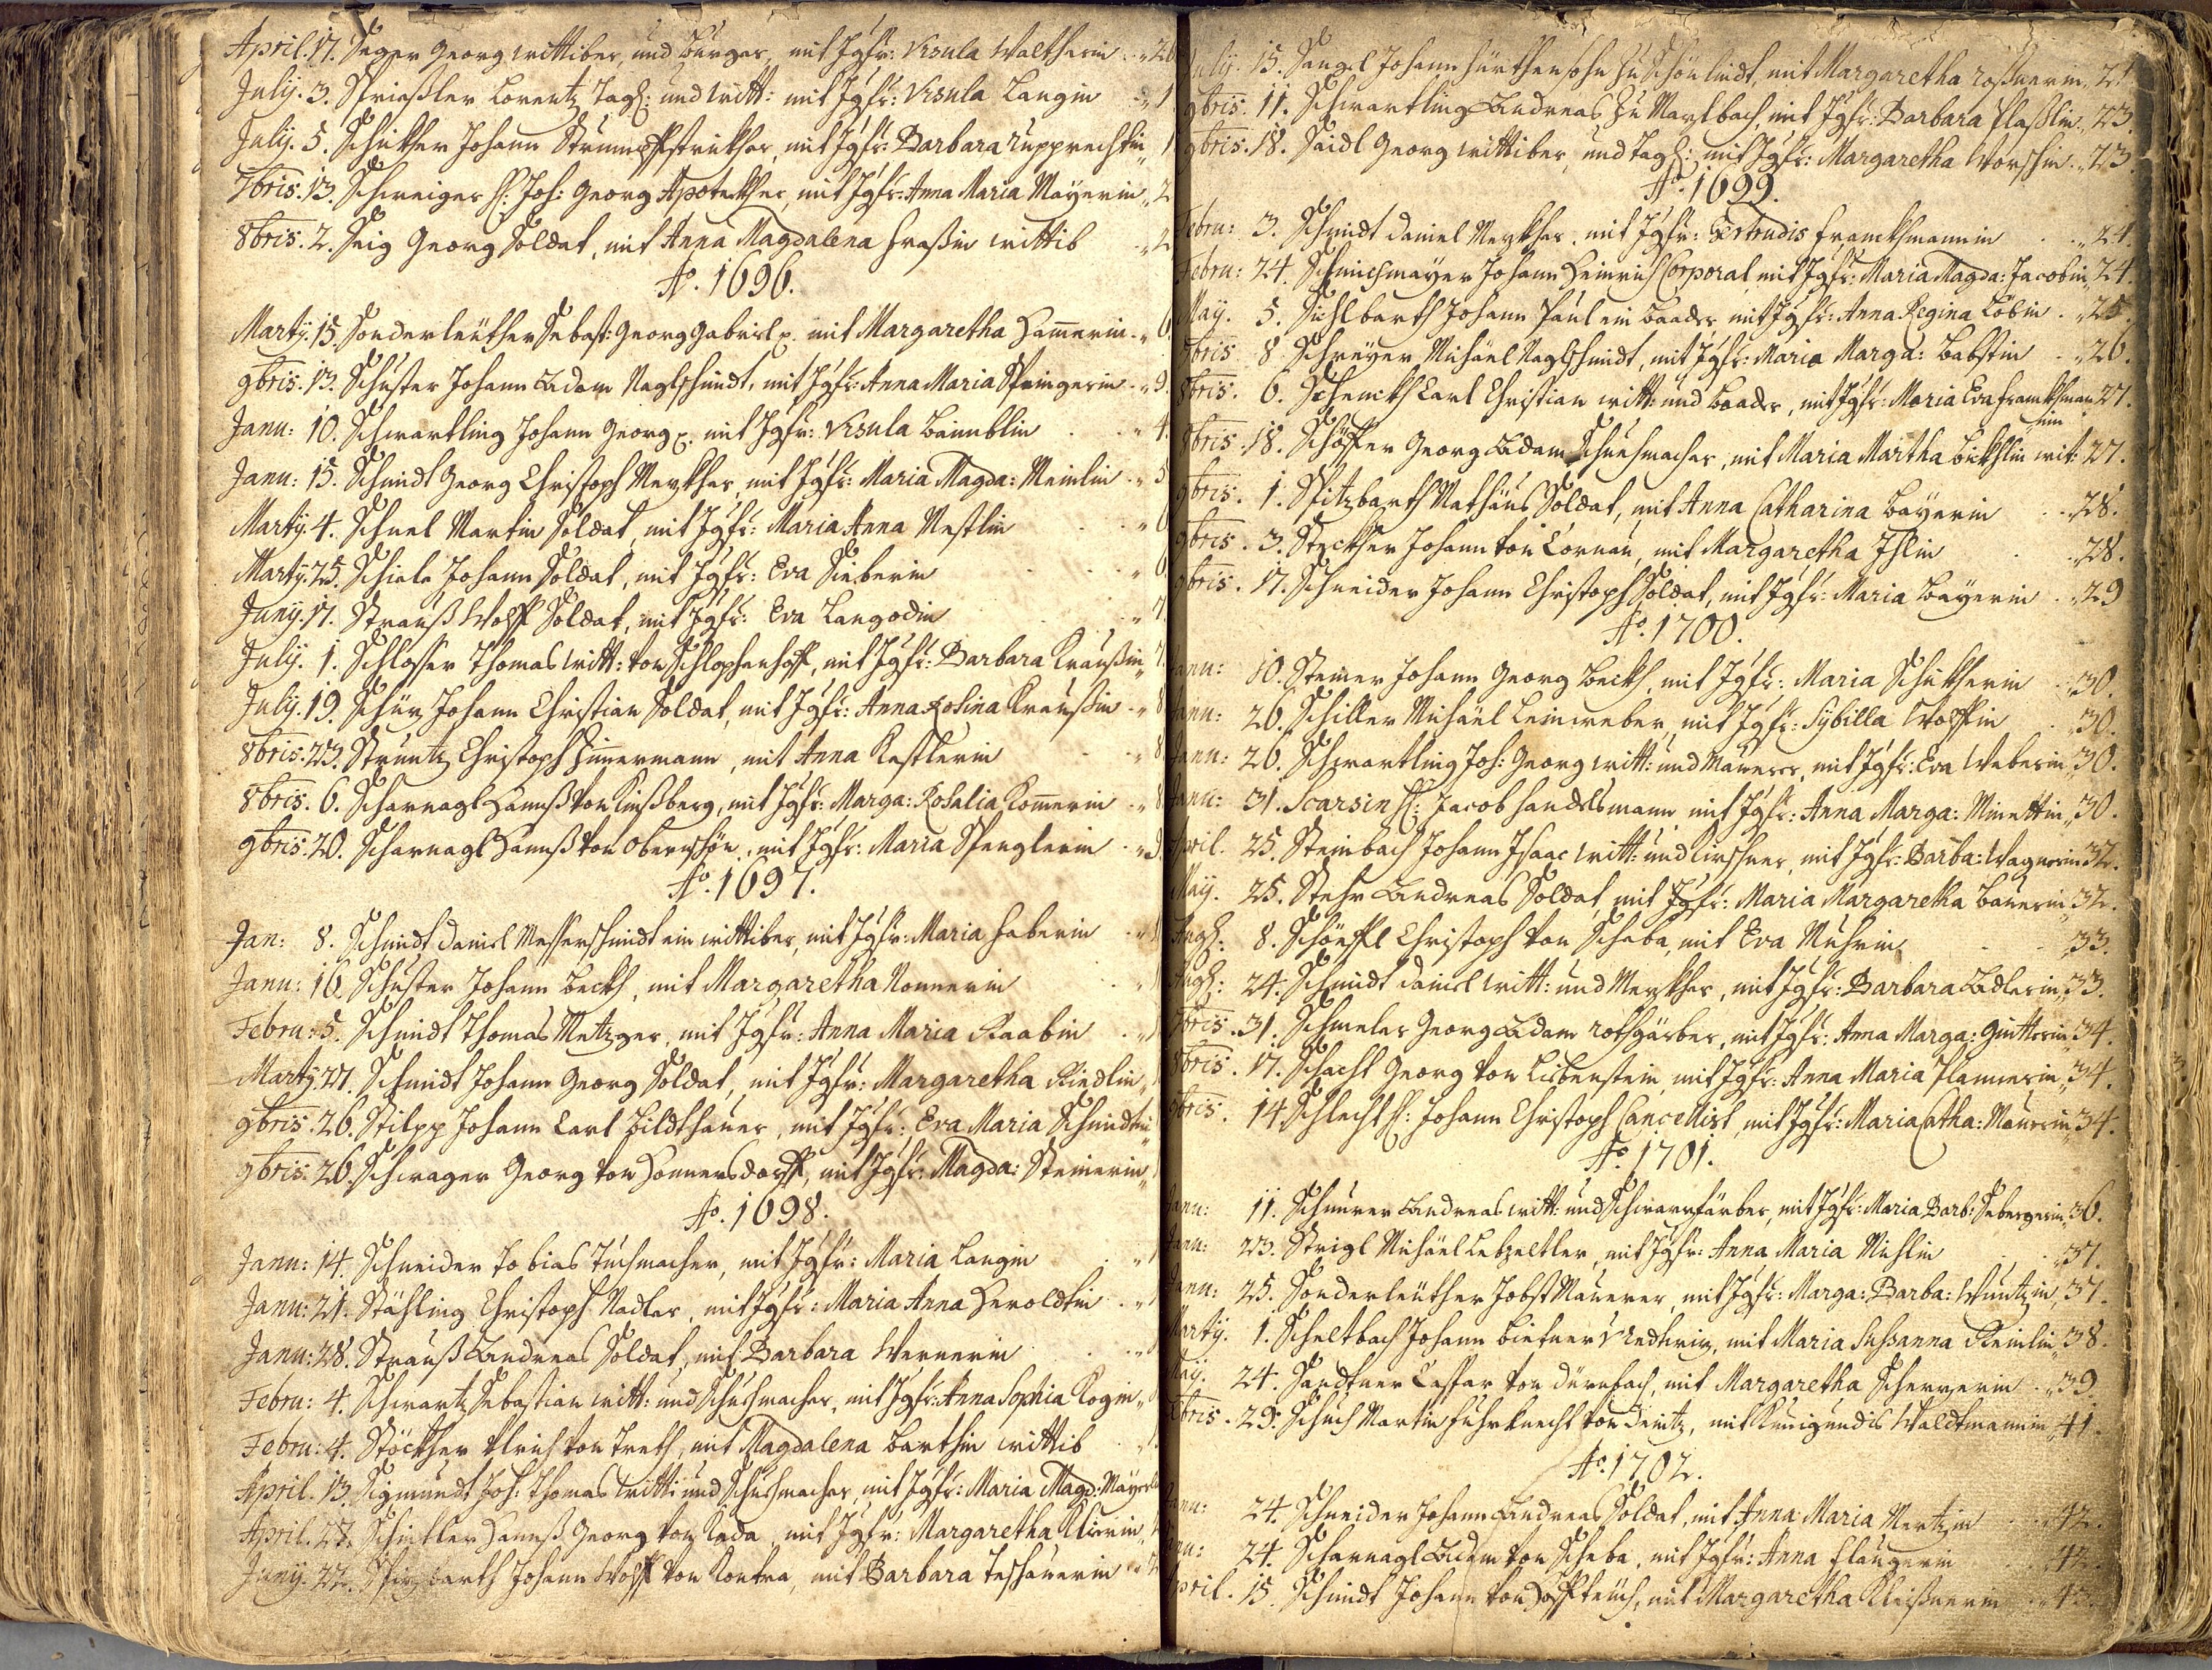 April. 17. Seger Georg wittiber, und Burger, mit Jgfr: Ursula Waltherin „ 26
July. 3. Strießler Lorentz Tagl: und witt: mit Jgfr: Ursula Langin „ 1
July. 5. Schickher Johann Strumpffstrickher, mit Jgfr: Barbara Rupprechtin „ 1
7bris. 13. Schweiger H: Joh: Georg Apoteckher, mit Jgfr: Anna Maria Mayerin „ 2
8bris. 2. Georg Soldat, mit Anna Magdalena wittib „ 2
Ao. 1696.
Marty. 15. Sonderleuther Sebast: Georg Gabriel mit Margaretha Hamerin „ 6.
9bris. 13. Schuster Johann Adam Naglschmidt, mit Jgfr: Anna Maria Springerin „ 9.
Janu: 10. Schwartling Johann Georg mit Jgfr: Ursula „ 4.
Janu: 15. Schmidt Georg Christoph mit Jgfr: Maria Magda: Meinlin „ 5
Marty. 4. Schnel Martin Soldat, mit Jgfr: Maria Anna Nestlin „ 6
Marty. 25. Schiele Johann Soldat, mit Jgfr: Eva Sieberin „ 6.
Juny. 17. Strauß Wolff Soldat, mit Jgfr: Eva Langodin „ 7.
July. 1. Schlosser Thomas witt: von mit Jgfr: Barbara Kraußin „ 7.
July. 19. Johann Christian Soldat, mit Jgfr: Anna Rosina Kraußin „ 8
8bris. 23. Struntz Christoph Zimermann, mit Anna Kestlerin „ 8
8bris. 6. Scharnagl Hannß von Kinßberg, mit Jgfr: Marga: Rosalia Komerin „ 8.
9bris. 20. Scharnagl Hannß von mit Jgfr: Maria Spenglerin „ 9.
Ao. 1697.
Jan: 8. Schmidt Daniel Messerschmidt ein wittiber, mit Jgfr: Maria Haberin
Janu: 16. Schuster Johann Beckh, mit Margaretha Nonnerin
Febru: 5. Schmidt Thomas Metzger, mit Jgfr: Anna Maria Raabin
Marty. 27. Schmidt Johann Georg Soldat, mit Jgfr: Margaretha Riedlin
9bris. 26. Stilpp Johann Carl Bildthauer, mit Jgfr: Eva Maria Schmidtin
9bris. 26. Schwager Georg von Honnersdorff, mit Jgfr: Magda: Steinerin
Ao. 1698.
Janu: 14. Schneider Tobias Tuchmacher, mit Jgfr: Maria Langin
Janu: 21. Stähling Christoph Nadler, mit Jgfr: Maria Anna Heroldtin
Janu: 28. Strauß Andreas Soldat, mit Barbara Wernerin
Febru: 4. Schwartz Sebastian witt: und Schuchmacher, mit Jgfr: Anna Sophia Kogin
Febru: 4. Stöckher Ulrich von Treth, mit Magdalena Barthin wittib
April. 13. Sigmundt Joh: Thomas witt: und Schuchmacher, mit Jgfr: Maria Magd:
April. 27. Hannß Georg von Kada, mit Jgfr: Margaretha Klierin
Juny. 22. Spitzbarth Johann Wolff von mit Barbara
July. 15. Sangel Johann Hürthensohn zu Schönlindt, mit Margaretha Roßnerin „ 21
9bris. 11. Schwartling Andreas zu mit Jgfr: Barbara Plaßlin „ 23.
9bris. 18. Seidl Georg wittiber, und Tagl: mit Jgfr: Margaretha „ 23
Ao. 1699.
Febru: 3. Schmidt Daniel mit Jgfr: Gertrudis Franckhmannin „ 24.
Febru: 24. Johann Heinrich Corporal mit Jgfr: Maria Magda: Jacobin „ 24.
May. 5. Johann Paul ein Baader, mit Jgfr: Anna Regina Löbin „ 25.
bris 8. Schreyer Michäel Naglschmidt, mit Jgfr: Maria Marga: Babstin „ 26.
8bris. 6. Schenckh Carl Christian witt: und Baader, mit Jgfr: Maria Eva Franckhman 27.
nin
8bris. 18. Schöffer Georg Adam Schuehmacher, mit Maria Martha wit: 27.
9bris. 1. Spitzbarth Mathäus Soldat, mit Anna Catharina Bayerin „ 28.
9bris. 3. Steckher Johann von Lornau, mit Margaretha Ihlin „ 28.
9bris. 17. Schneider Johann Christoph Soldat, mit Jgfr: Maria Bayerin „ 29
Ao. 1700.
Janu: 10. Steiner Johann Georg Beckh, mit Jgfr: Maria Schickherin „ 30.
Janu: 26. Schiller Michäel Leinweber, mit Jgfr: Sybilla Wolffin „ 30.
Janu: 26. Schwartling Joh: Georg witt: und Maurer, mit Jgfr: Eva Weberin „ 30.
Janu: 31. Scarsin H: Jacob Handelsmann mit Jgfr: Anna Marga: Minettin „ 30.
April. 25. Steinbach Johann Isaac witt: und Kirschner, mit Jgfr: Barba: Wagnerin 32.
May. 25. Stehr Andreas Soldat, mit Jgfr: Maria Margaretha Bauerin „ 32.
Augl: 8. Christoph von Scheba, mit Eva „ 33.
Augl: 24. Schmidt Daniel witt: und mit Jgfr: Barbara Adlerin „ 33.
bris. 31. Schmeler Georg Adam Rothgärber, mit Jgfr: Anna Marga: „ 34.
8bris. 17. Schacht Georg von Liebenstein, mit Jgfr: Anna Maria Plannerin „ 34.
bris. 14. Schlecht H: Johann Christoph Cancellist, mit Jgfr: Maria Catha: Maurerin 34.
Ao. 1701.
Janu: 11. Schnurer Andreas witt: und Schwarzfärber, mit Jgfr: Maria Barb: „ 36.
Janu: 23. Strigl Michäel Lebzeltler, mit Jgfr: Anna Maria Michlin „ 37.
Janu: 25. Sonderleuther Jobst Maurer, mit Jgfr: Marga: Barba: Wuntzin „ 37.
Marty. 1. Scheltbach Johann mit Maria Susanna Reinlin „ 38.
May. 24. Sandtner Caspar von mit Margaretha Scherzerin „ 39.
bris. 29. Schuch Martin Fuhrknecht von mit Kunigundis Waldtmannin 41.
Ao. 1702.
Janu: 24. Schneider Johann Andreas Soldat, mit Anna Maria Mertzin „ 42.
Janu: 24. Scharnagl Adam von Scheba, mit Jgfr: Anna „ 42.
April. 15. Schmidt Johann von mit Margaretha Kleißnerin